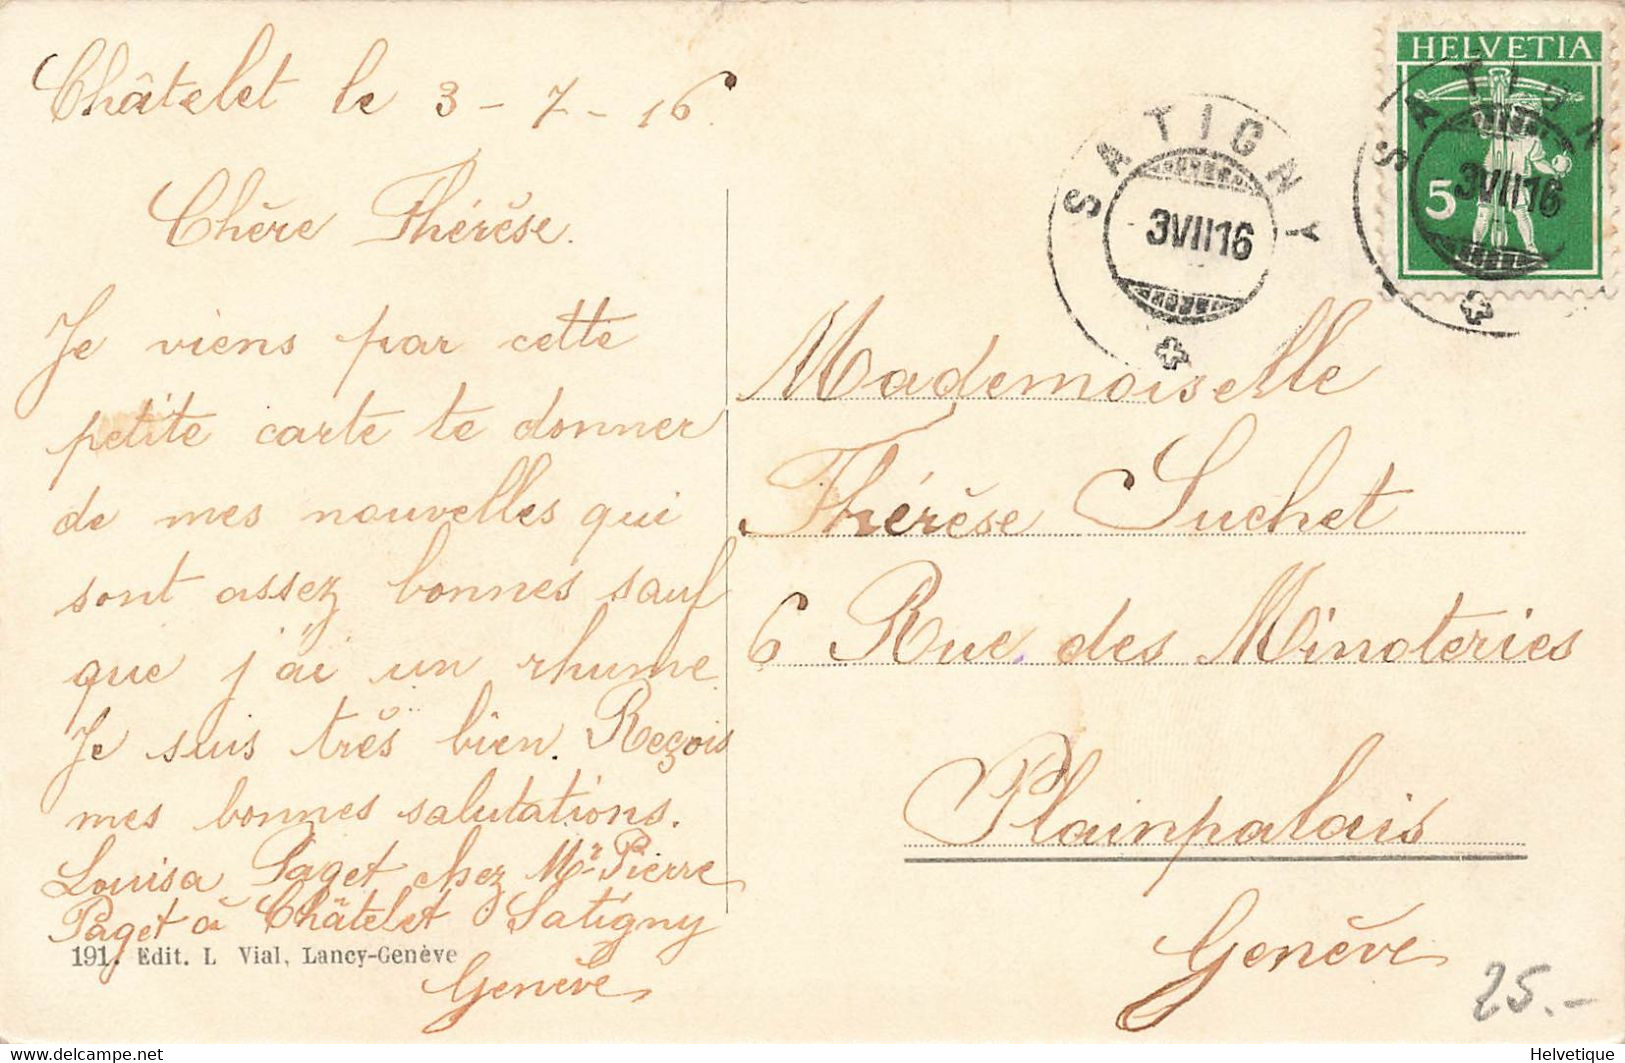 Châtelet le 3-7-16.
Chère Thérèse.
Je viens par cette
petite carte te donner
de mes nouvelles qui
sont assez bonnes sauf
que j'ai un rhume
Je suis très bien. Reçois
mes bonnes salutations.
Louisa Paget chez Mr Pierre
Paget à Châtelet Satigny
Genève
191. Edit. L Vial, Lancy-Genève
SATIGNY
3VII16
HELVETIA
5
SATIGNY
3VII16
Mademoiselle
Thérèse Suchet
6 Rue des Minoteries
Plainpalais
Genève
25.-
delcampe.net
Helvetique